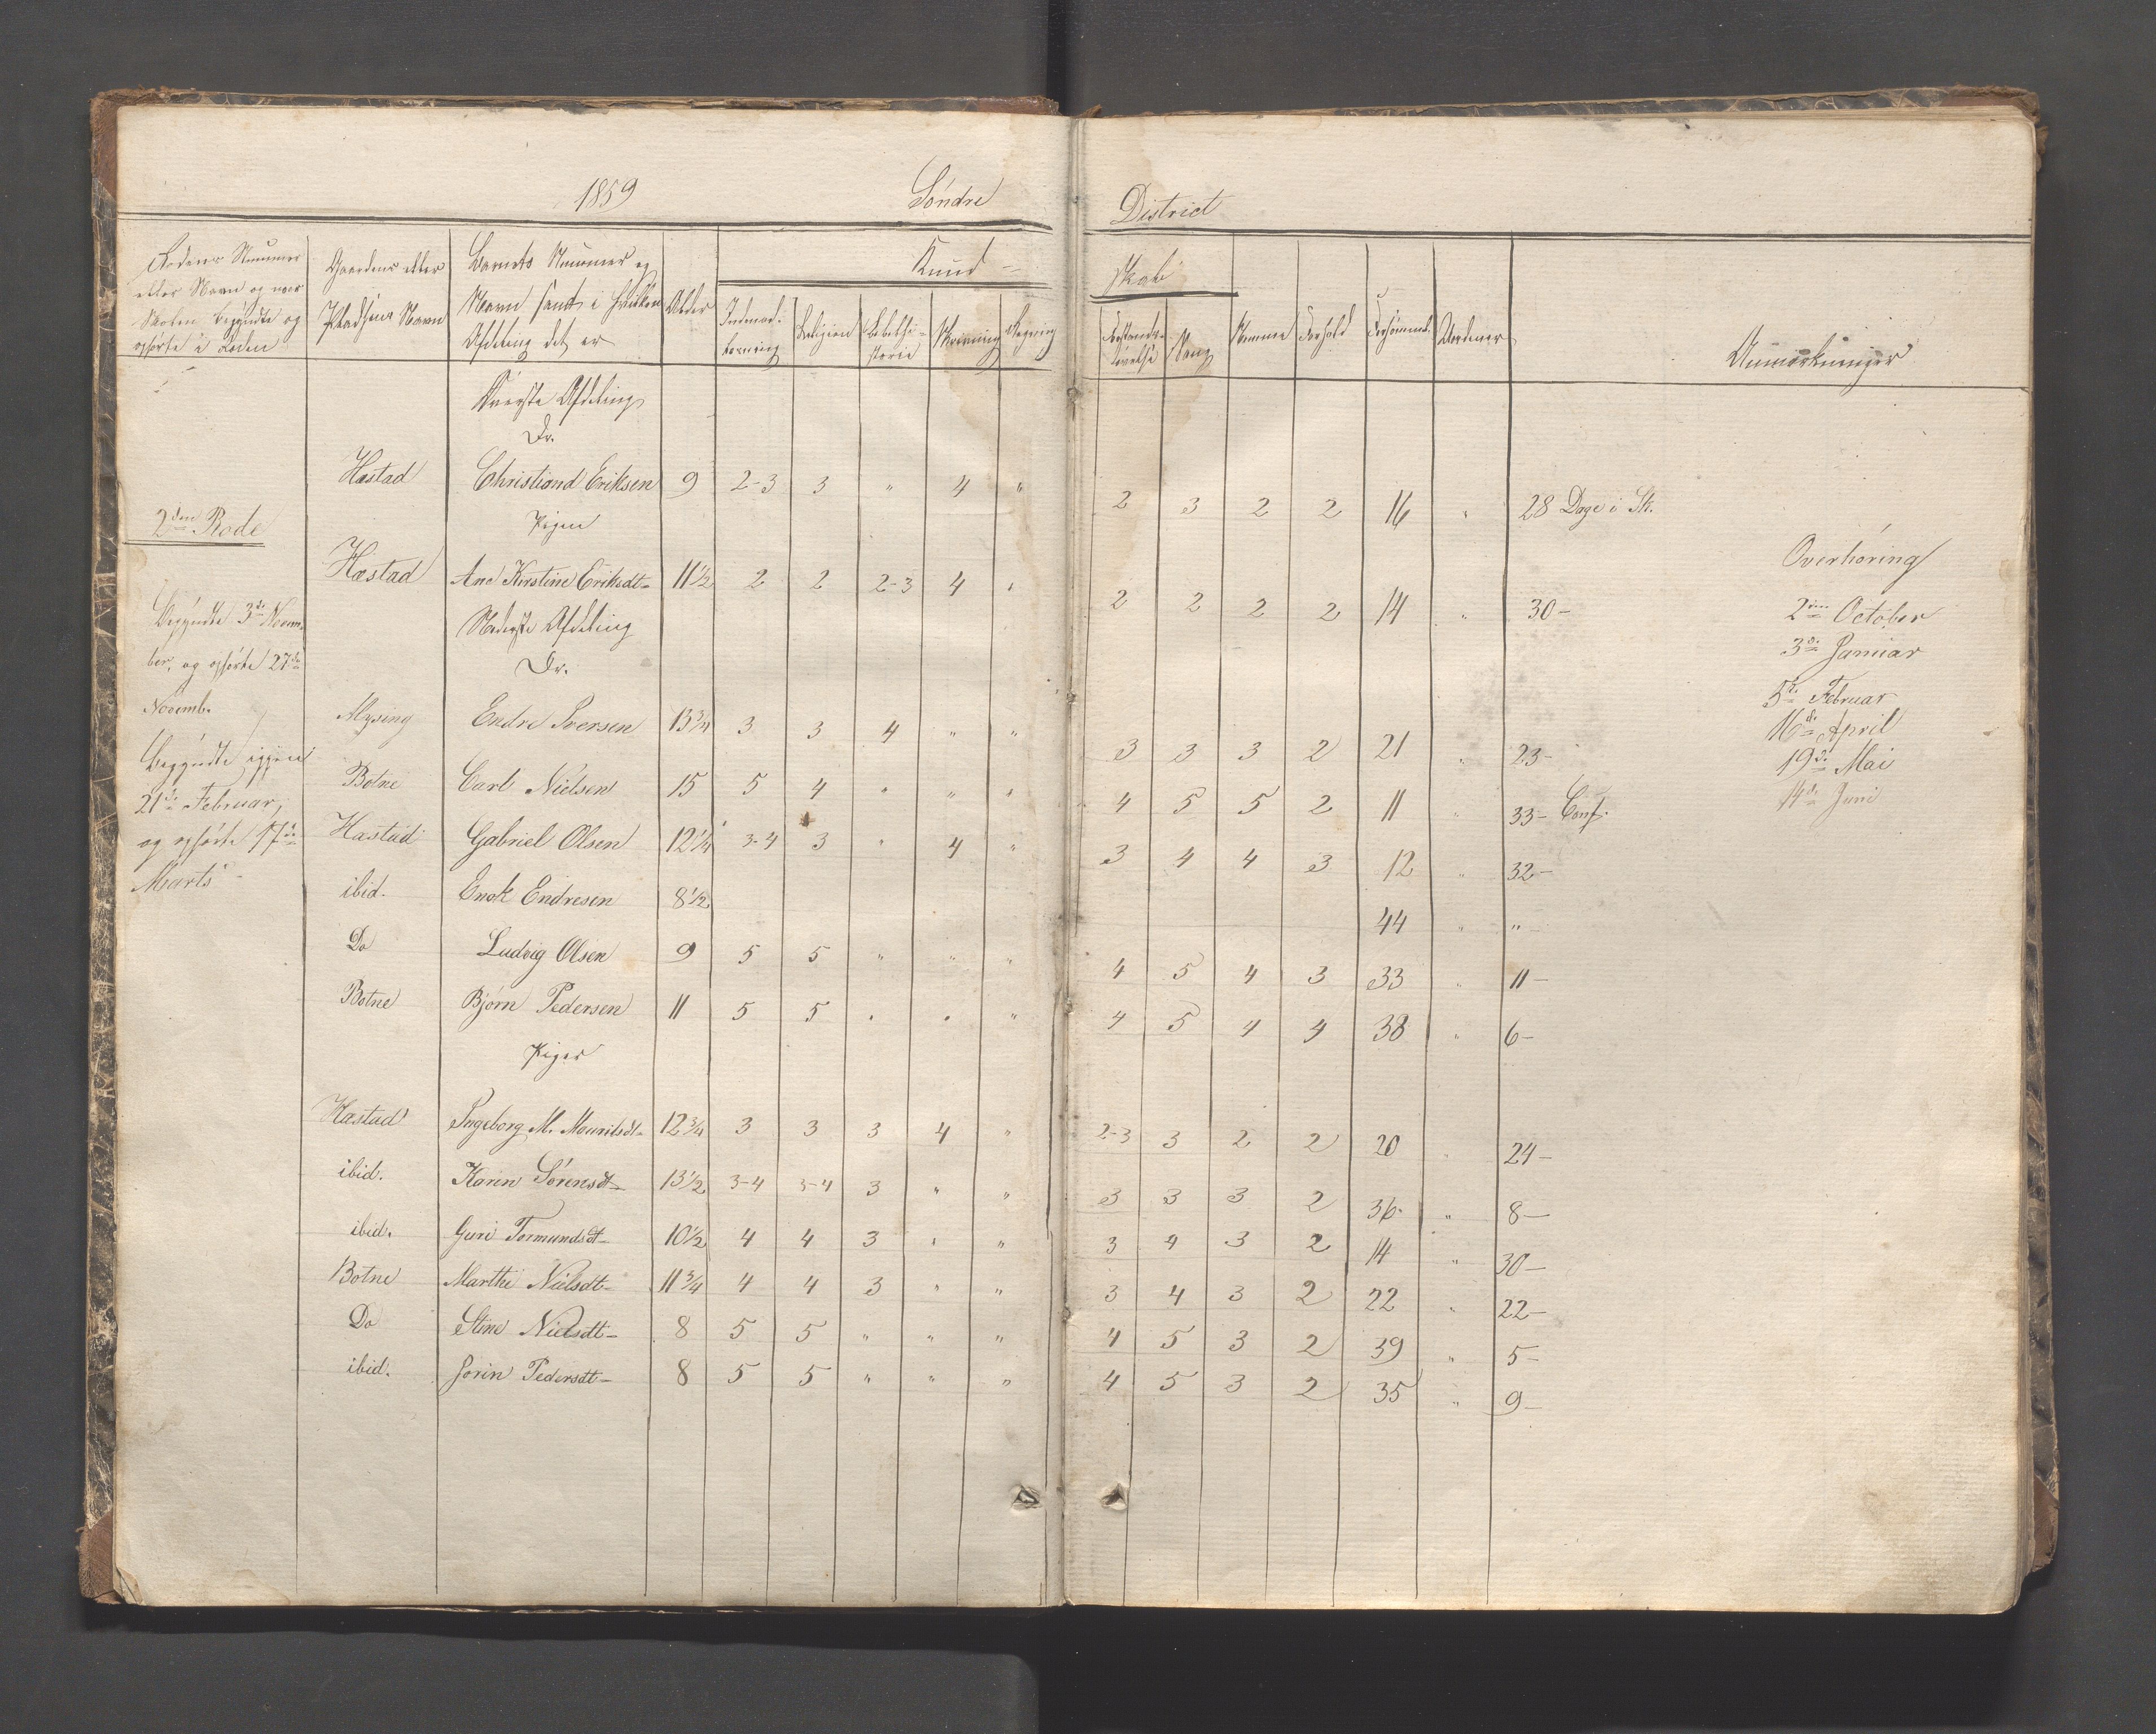 1859 Söndre District
Rodens Nummer eller Navn og naar Skolen begyndte og ophörte i Roden
Gaardens eller Pladsens Navn
Barnets Nummer og Navn samt i hvilken Afdeling det er
Alder
Kund- skab
Religion Bibelhi- storie Skrivning Regning
Forstands- övelse Sang Nemme Forhold Forsömmel. Anmærkninger
Överste Afdeling
Dr.
Hæstad Christiand Eriksen 9 2-3 3 " 4 " 2 3 2 2 16 " 28 Dage i Sk.
2den Rode
Piger
Overhöring
Hæstad Ane Kirstine Eriksdt- 11 1/2 2 2 2-3 4 " 2 2 2 2 14 " 30-
Nederste Afdeling
Dr.
Begyndte 3de Novem-
ber, og ophörte 27de
Novemb.
Begyndte igjen
21de Februar,
og ophörte 17de
Marts
2den October
3de Januar
5te Februar
16de April
19de Mai
14de Juni
Mysing Endre Iversen 13 3/4 3 3 4 " " 3 3 3 2 21 " 23-
Botne Carl Nielsen 15 5 4 " " " 4 5 5 2 11 " 33- Conf.
Hæstad Gabriel Olsen 12 1/4 3-4 3 " 4 " 3 4 4 3 12 " 32-
ibid. Enok Endresen 8 1/2 44 " "
Do Ludvig Olsen 9 5 5 " " " 4 5 4 3 33 " 11-
Botne Bjørn Pedersen 11 5 5 " " " 4 5 4 4 38 " 6-
Piger
Hæstad Ingeborg M. Mouritsdt- 12 3/4 3 3 3 4 " 2-3 3 2 2 20 " 24-
ibid. Karen Sörensdt- 13 1/2 3-4 3-4 3 " " 3 3 3 2 36 " 8-
ibid. Guri Tormundsdt- 10 1/2 4 4 3 " " 3 4 3 2 14 " 30-
Botne Marthe Nielsdt- 11 3/4 4 4 3 " " 3 4 3 2 22 " 22-
Do Stine Nielsdt- 8 5 5 " " " 4 5 3 2 39 " 5-
ibid. Jorin Pedersdt- 8 5 5 " " " 4 5 3 2 35 " 9-